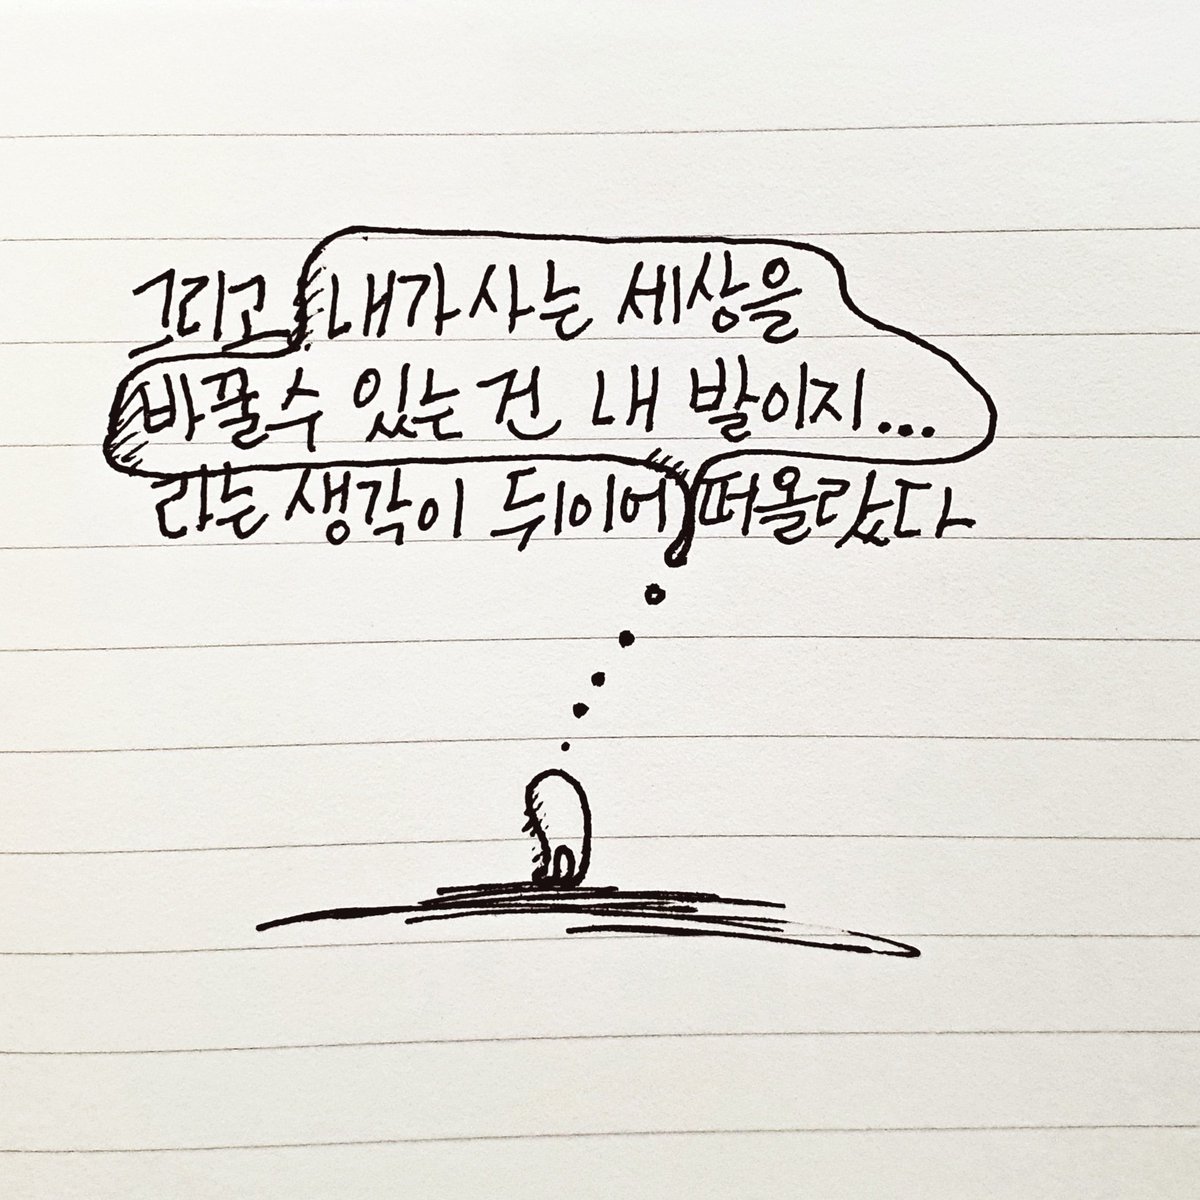 그리고 내가 사는 세상을
바꿀 수 있는 건 내 발이지...
라는 생각이 뒤이어 떠올랐다